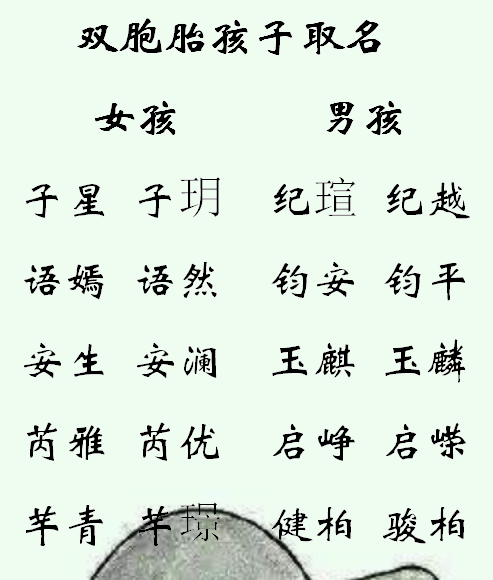 双胞胎孩子取名
女孩 男孩
子星 子玥 纪瑄 纪越
语嫣 语然 钧安 钧平
安生 安澜 玉麒 玉麟
芮雅 芮优 启峥 启嵘
芊青 芊璟 健柏 骏柏